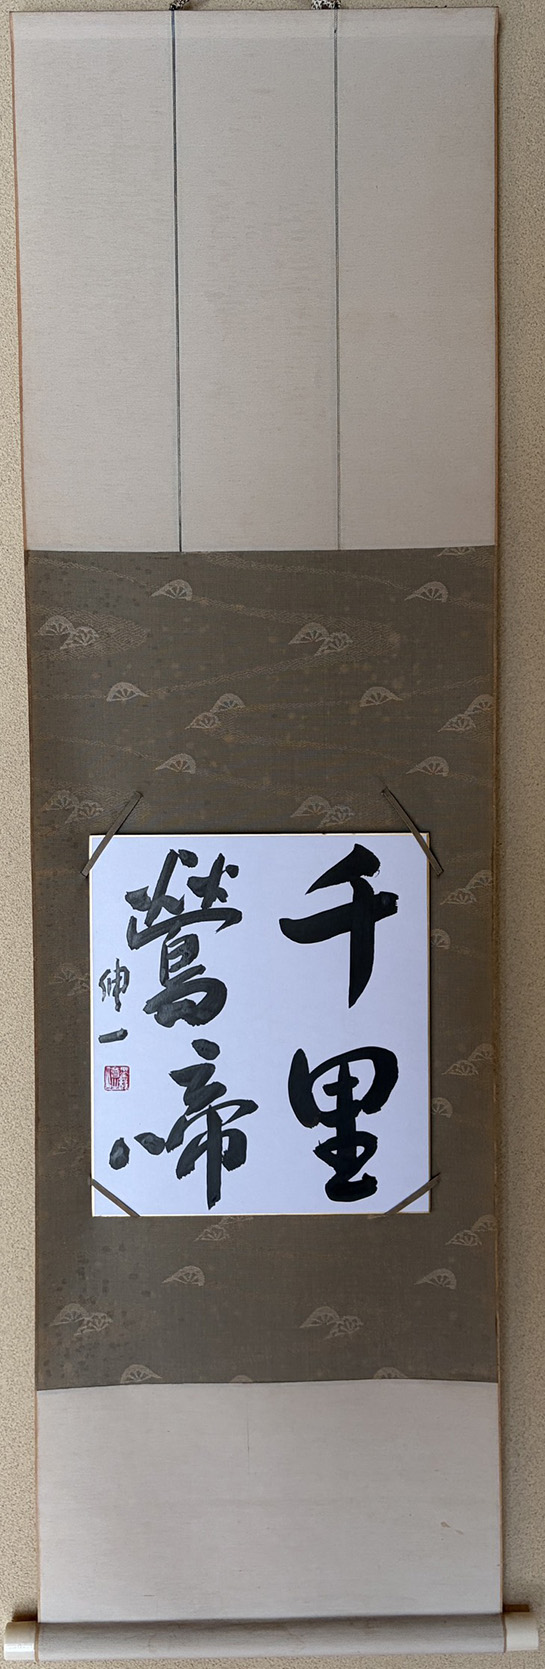 千里
鶯啼
伸一